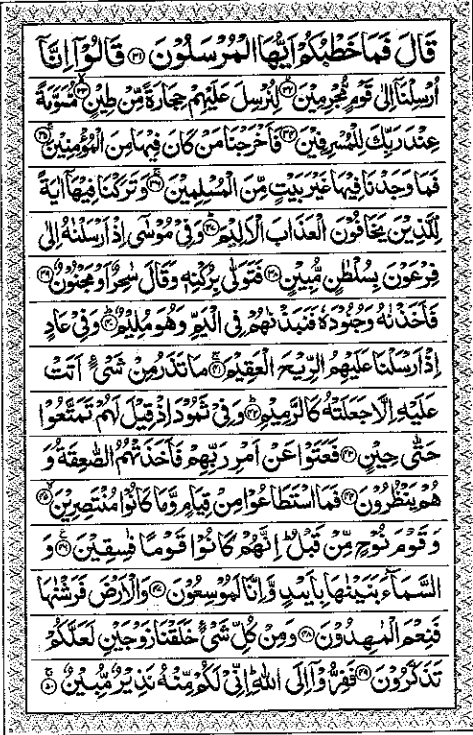 قَالَ فَمَا خَطْبُكُمْ اَيُّهَا الْمُرْسَلُوْنَ ﴿۳۱﴾ قَالُوْۤا اِنَّاۤ
اُرْسِلْنَاۤ اِلٰى قَوْمٍ مُّجْرِمِيْنَ ﴿۳۲﴾ لِنُرْسِلَ عَلَيْهِمْ حِجَارَةً مِّنْ طِيْنٍ ﴿۳۳﴾ مُّسَوَّمَةً
عِنْدَ رَبِّكَ لِلْمُسْرِفِيْنَ ﴿۳۴﴾ فَاَخْرَجْنَا مَنْ كَانَ فِيْهَا مِنَ الْمُؤْمِنِيْنَ ﴿۳۵﴾
فَمَا وَجَدْنَا فِيْهَا غَيْرَ بَيْتٍ مِّنَ الْمُسْلِمِيْنَ ﴿۳۶﴾ وَتَرَكْنَا فِيْهَاۤ اٰيَةً
لِّلَّذِيْنَ يَخَافُوْنَ الْعَذَابَ الْاَلِيْمَ ﴿۳۷﴾ وَفِيْ مُوْسٰۤى اِذْ اَرْسَلْنٰهُ اِلٰى
فِرْعَوْنَ بِسُلْطٰنٍ مُّبِيْنٍ ﴿۳۸﴾ فَتَوَلّٰى بِرُكْنِهٖ وَقَالَ سٰحِرٌ اَوْ مَجْنُوْنٌ ﴿۳۹﴾
فَاَخَذْنٰهُ وَجُنُوْدَهٗ فَنَبَذْنٰهُمْ فِي الْيَمِّ وَهُوَ مُلِيْمٌ ﴿۴۰﴾ وَفِيْ عَادٍ
اِذْ اَرْسَلْنَا عَلَيْهِمُ الرِّيْحَ الْعَقِيْمَ ﴿۴۱﴾ مَا تَذَرُ مِنْ شَيْءٍ اَتَتْ
عَلَيْهِ اِلَّا جَعَلَتْهُ كَالرَّمِيْمِ ﴿۴۲﴾ وَفِيْ ثَمُوْدَ اِذْ قِيْلَ لَهُمْ تَمَتَّعُوْا
حَتّٰى حِيْنٍ ﴿۴۳﴾ فَعَتَوْا عَنْ اَمْرِ رَبِّهِمْ فَاَخَذَتْهُمُ الصّٰعِقَةُ وَ
هُمْ يَنْظُرُوْنَ ﴿۴۴﴾ فَمَا اسْتَطَاعُوْا مِنْ قِيَامٍ وَّمَا كَانُوْا مُنْتَصِرِيْنَ ﴿۴۵﴾
وَقَوْمَ نُوْحٍ مِّنْ قَبْلُ ؕ اِنَّهُمْ كَانُوْا قَوْمًا فٰسِقِيْنَ ﴿۴۶﴾ وَ
السَّمَآءَ بَنَيْنٰهَا بِاَيْىدٍ وَّاِنَّا لَمُوْسِعُوْنَ ﴿۴۷﴾ وَالْاَرْضَ فَرَشْنٰهَا
فَنِعْمَ الْمٰهِدُوْنَ ﴿۴۸﴾ وَمِنْ كُلِّ شَيْءٍ خَلَقْنَا زَوْجَيْنِ لَعَلَّكُمْ
تَذَكَّرُوْنَ ﴿۴۹﴾ فَفِرُّوْۤا اِلَى اللّٰهِ ؕ اِنِّيْ لَكُمْ مِّنْهُ نَذِيْرٌ مُّبِيْنٌ ﴿۵۰﴾